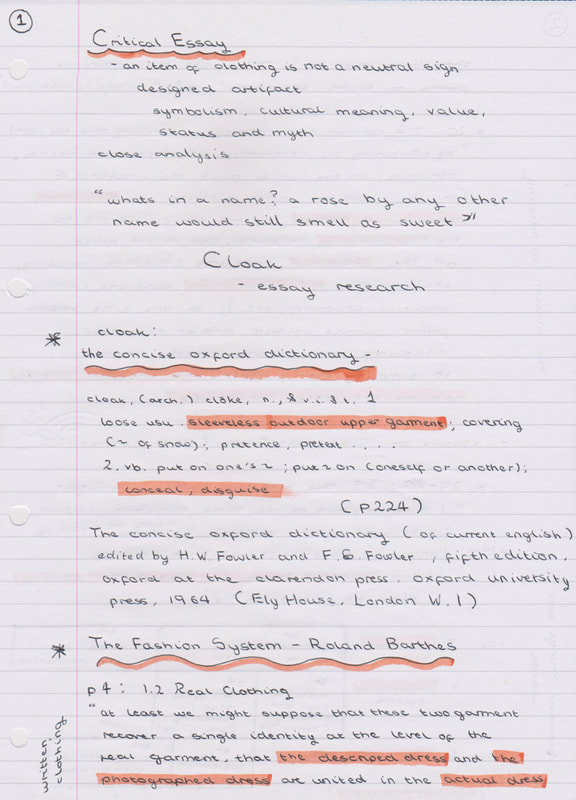 1
Critical Essay
- an item of clothing is not a neutral sign
designed artifact
symbolism, cultural meaning, value,
status and myth
close analysis
"whats in a name? a rose by any other
name would still smell as sweet"
Cloak
- essay research
* cloak:
the concise oxford dictionary -
cloak, (arch.) cloke, n., & v.i. & t. 1
loose usu. sleeveless outdoor upper garment; covering
(~ of snow); pretence, pretext ....
2. vb. put on one's ~; put ~ on (oneself or another);
conceal, disguise
(p224)
The concise oxford dictionary (of current english)
edited by H.W. Fowler and F.G. Fowler, fifth edition.
oxford at the clarendon press. oxford university
press, 1964 (Ely House, London W.1)
* The Fashion System - Roland Barthes
p4: 1.2 Real Clothing
"at least we might suppose that these two garment
recover a single identity at the level of the
real garment, that the described dress and the
photographed dress are united in the actual dress
written clothing